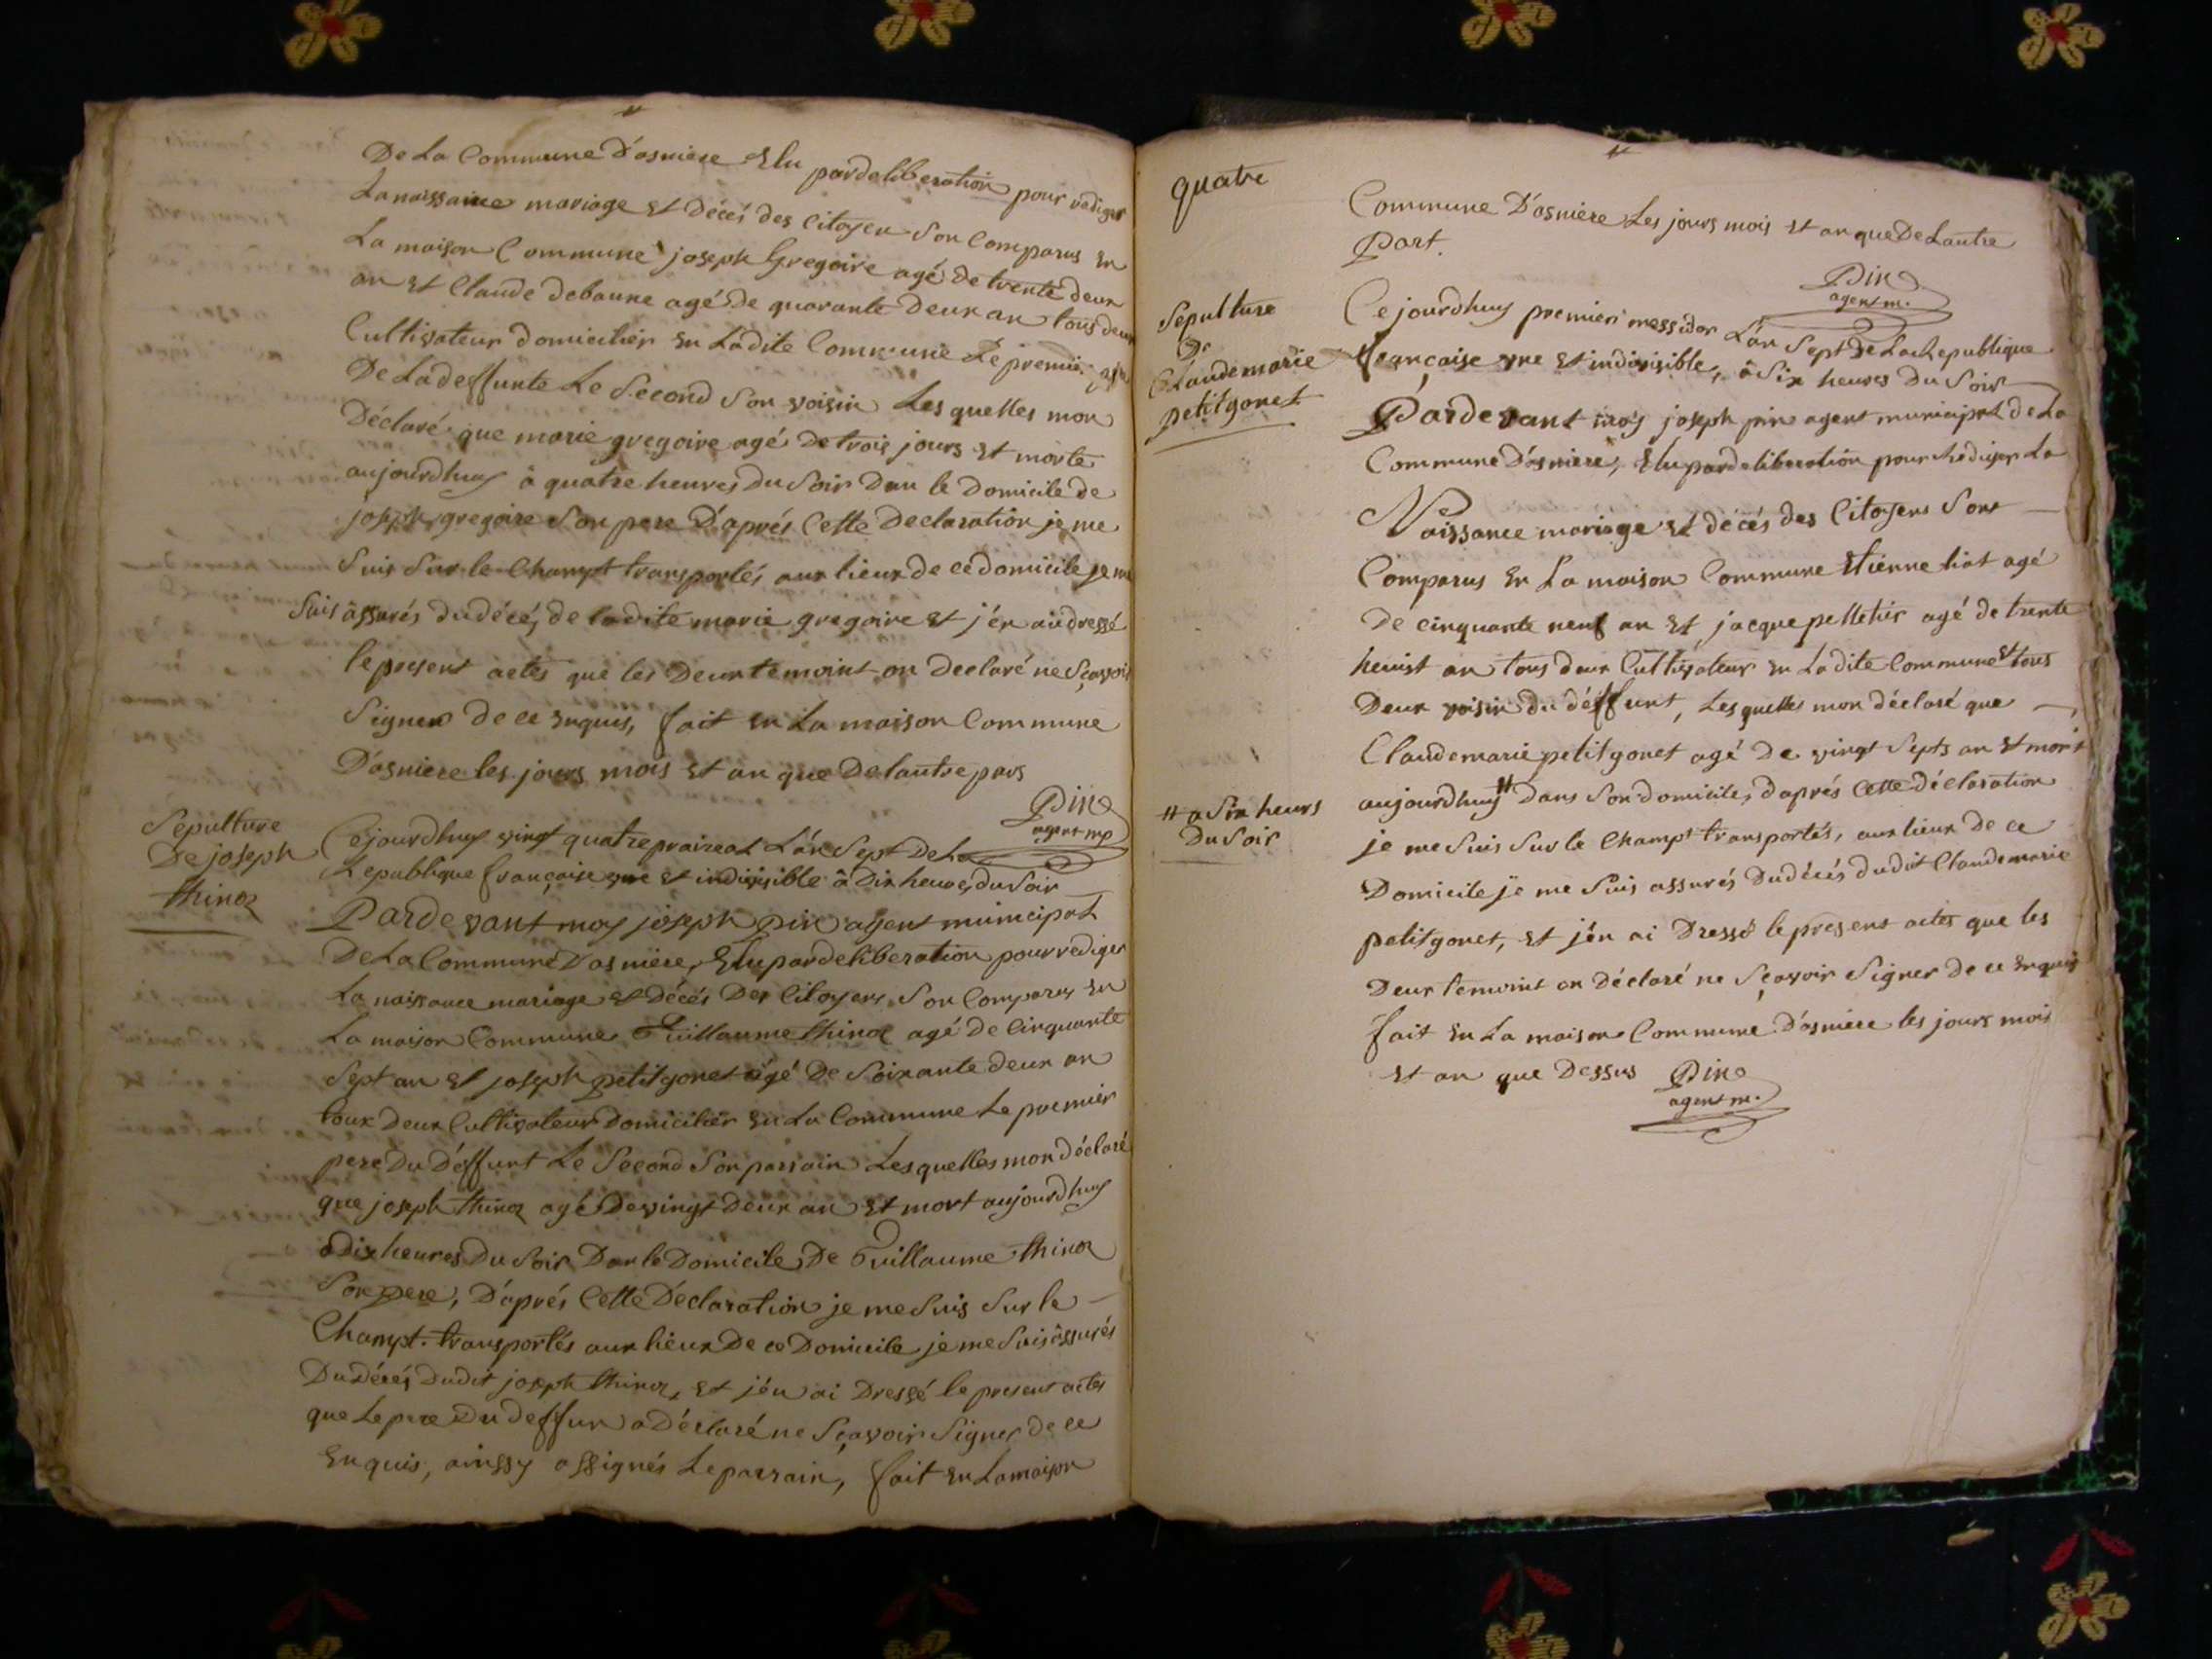 De La Commune D'asniere Elu pardeliberation pour rediger
La naissance mariage et Décés des Citoyen Son Comparus En
La maison Commune joseph Gregoire agé de trente deux
an et Claude debaune agé de quarante Deux an tous deux
Cultivateur domicilier En Ladite Commune Le premier
De La deffunte Le Second Son voisin Les quelles mon
Déclaré que marie gregoire agé de trois jours Et morte
aujourdhuy à quatre heures Du Soir Dan le Domicile de
joseph gregoire Son pere D'aprés Cette Declaration je me
Suis Sur le Champt transportés aux lieux de ce domicile je me
Suis assurés du décés de ladite marie gregoire et j'én ai dressé
le present actes que les Deux temoint on Declaré ne Sçavoir
Signer de ce Enquis, fait En La maison Commune
D'asniere les jours mois et an que De lautre pars
Pin
agent mp
Sepulture
De joseph
thinoz
Cejourdhuy vingt quatre praireal L'án Sept De La
Republique française une et indivisible à Dix heures du Soir
Pardevant moy joseph pin agent municipal
De La Commune D'asniere, Elu pardeliberation pour rediger
La naissance mariage et Décés Des Citoyens Son Comparus En
La maison Commune Guillaume thinoz agé de Cinquante
Sept an et joseph petitgonet agé De Soixante deux an
toux Deux Cultivateur Domicilier En La Commune Le premier
pere Du Déffunt Le Second Son parrain Les quelles mon Déclaré
que joseph thinoz agé De vingt Deux an Et mort aujourdhuy
à dix heures Du Soir Dan le Domicile De Guillaume thinoz
Son pere, D'aprés Cette Déclaration je me Suis Sur le
Champt transportés aux lieux De ce Domicile je me Suis assurés
Du Décés Dudit joseph thinoz, et j'én ai Dressé le present actes
que Le pere Du deffun a Déclaré ne Sçavoir Signer de ce
Enquis, ainssy assignés Le parrain, fait En La maison
quatre
Commune D'asniere Les jours mois et an que De Lautre
Part.
Pin
agent m.
Sepulture
De
Claudemarie
petitgonet
Cejourdhuy premier messidor L'án Sept De La Republique
française une et indivisible, à Six heures Du Soir
Pardevant moy joseph pin agent municipal de La
Commune D'asniere, Elu pardeliberation pour Rediger La
Naissance mariage et décés des Citoyens Sont
Comparus En La maison Commune Etienne liat agé
De cinquante neuf an Et jacque pelletier agé de trente
heuist an tous deux Cultivateur En Ladite Commune et tous
Deux voisin du déffunt, Les quelles mon déclaré que
Claudemarie petitgonet agé De vingt Septs an Et mort
aujourdhuy # dans Son domicile, daprés Cette déclaration
# a Six heurs
Du Soir
je me Suis Sur le Champt transportés, aux lieux de ce
Domicile je me Suis assurés Du décés dudit Claudemarie
petitgonet, et j'én ai Dressé le present actes que les
Deux temoint on Déclaré ne Sçavoir Signer de ce Enquis
fait En La maison Commune D'asniere les jours mois
et an que Dessus Pin
agent m.